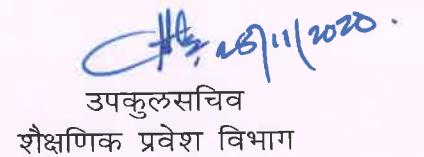 25/11/2020.
उपकुलसचिव
शैक्षणिक प्रवेश विभाग